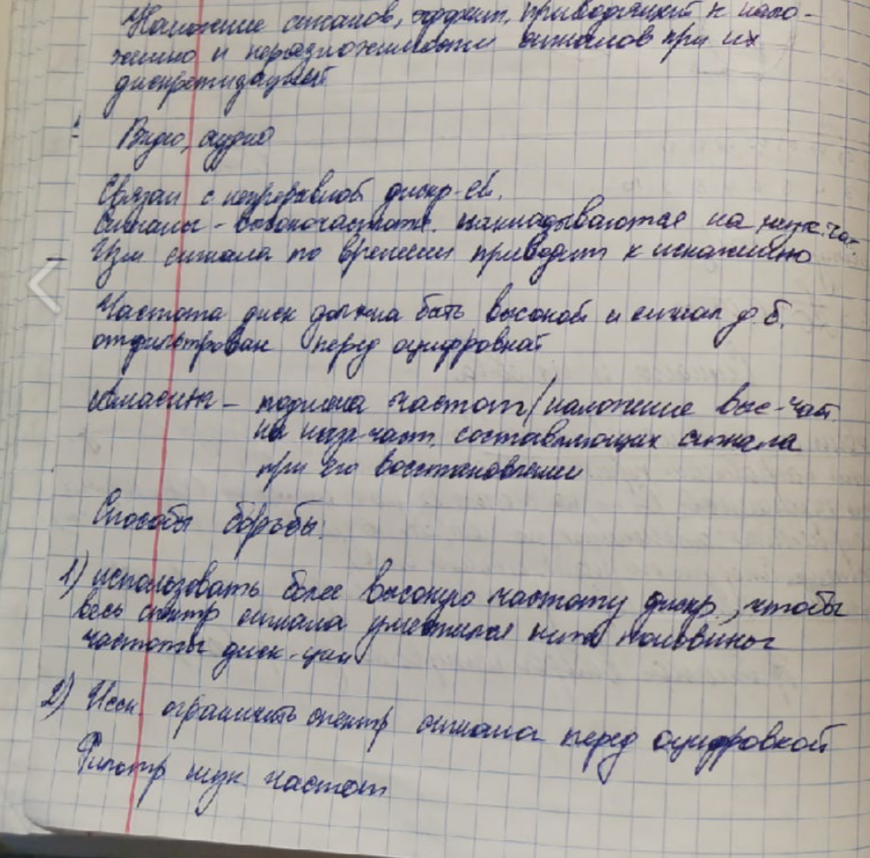 Наложение сигналов, эффект, приводящий к нало-
жению и неразложимости сигналов при их
дискретизацией
Видео, аудио
Связан с непрерывной дискр-ей.
Сигналы - высокочастотн. накладываются на низк.час.
Изм сигнала по времени приводит к искажению
Частота диск должна быть высокой и сигнал д.б.
отфильтрован перед оцифровкой
- подмена частот/наложение выс-част
на низк-част. составляющих сигнала
при его восстановлении
Способы борьбы:
1) использовать более высокую частоту дискр, чтобы
весь спектр сигнала уместился ниже половины
частоты диск-ции
2) ограничить спектр сигнала перед оцифровкой
Фильтр низк частот